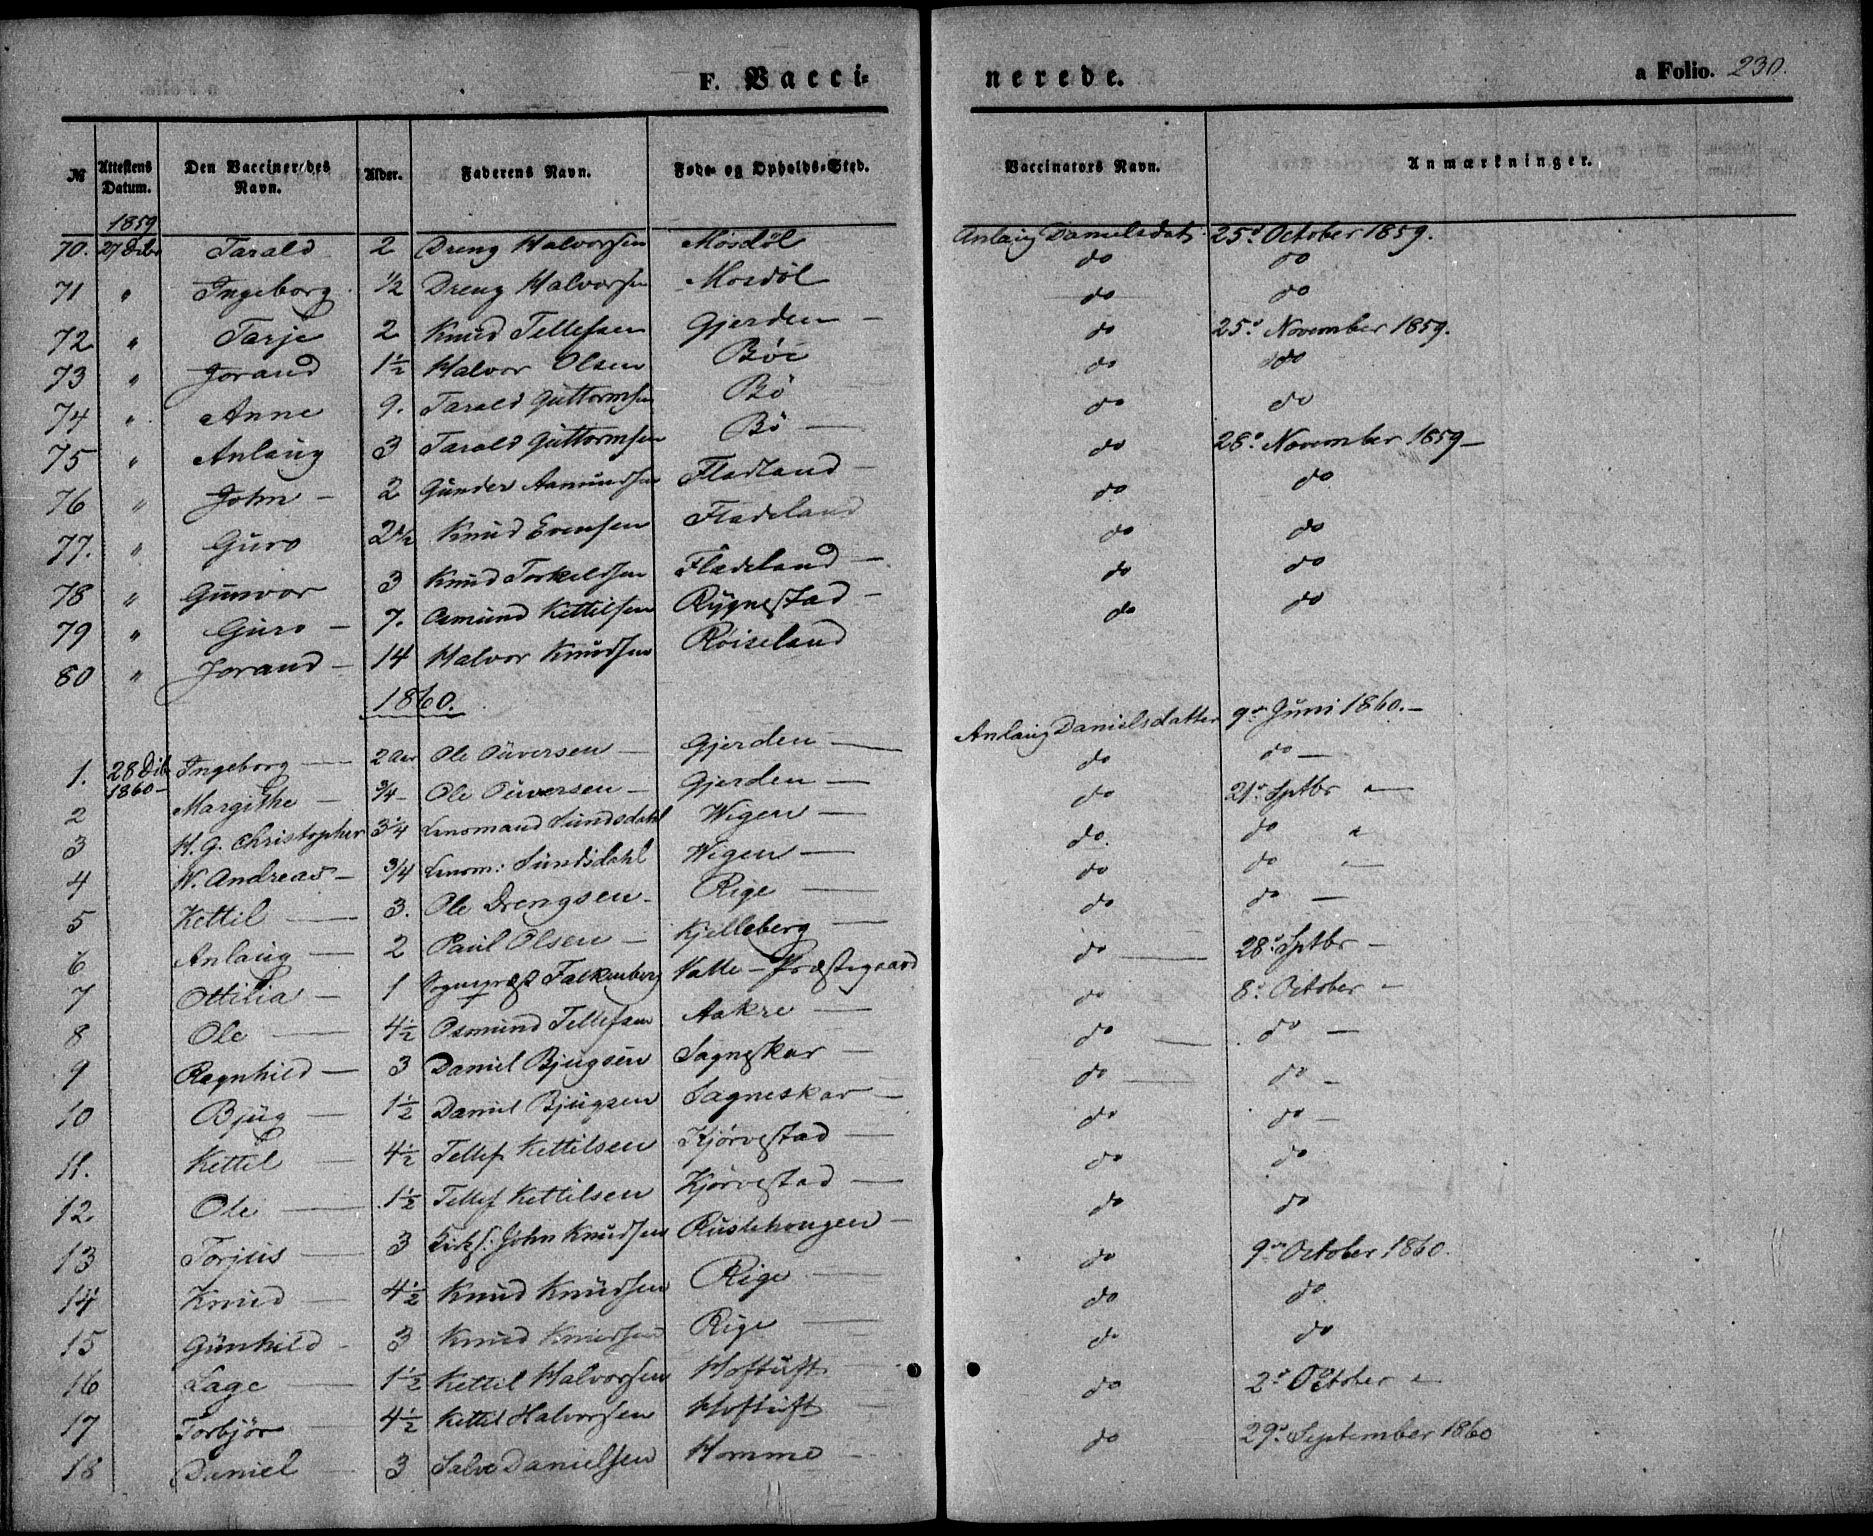 F. Vacci-
nerede.
a Folio. 230.
№ | Attestens Datum. | Den Vaccineredes Navn. | Alder. | Faderens Navn. | Føde- og Opholds-Sted. | Vaccinators Navn. | Anmærkninger.
1859
70. | 27 Dcbr | Tarald | 2 | Dreng Halvorsen | Mosdøl | Anlaug Danielsdatr | 25de October 1859.
71 | " | Ingeborg | 1/2 | Dreng Halvorsen | Mosdøl | do | do
72 | " | Tarje | 2 | Knud Tellefsen | Gjerden — | do | do
73 | " | Jorand | 1½ | Halvor Olsen | Bøe | do | 25de November 1859.
74 | " | Anne | 9. | Tarald Guttormsen | Bö | do | do
75 | " | Anlaug | 3 | Tarald Guttormsen | Bö — | do | do
76 | " | John — | 2 | Gunder Aamundsen | Fladland — | do | 28de November 1859 —
77. | " | Guro | 2½ | Knud Evensen | Fladeland | do | do
78 | " | Gunvor | 3 | Knud Torkeldsen | Fladeland — | do | do
79 | " | Guro — | 7. | Osmund Kettilsen | Rygnestad — | do | do
80 | " | Jorand — | 14 | Halvor Knudsen | Røiseland | do | do
1860.
1. | 28 Dcb. 1860 — | Ingeborg — | 2 Aar | Ole Ouversen — | Gjerden — | Anlaug Danielsdatter | 9de Juni 1860. —
2 | Margithe — | 3/4 — | Ole Ouversen — | Gjerden — | do | do —
3 | H. G. Christopher | 3¼ | Lensmand Sundsdahl | Wigen — | do | 21de Sptbr "—
4 | W. Andreas — | 3/4 | Lensm: Sundsdahl | Wigen — | do. | do "
5 | Kettil — | 3. | Ole Drengsen — | Rige — | do | do "—
6 | Anlaug — | 2 | Paul Olsen — | Kjelleberg — | do | do —
7 | Ottilia — | 1 | Sognepræst Falkenberg | Valle — Præstegaard | do — | 28de Sptbr —
8 | Ole — | 4½ | Osmund Tellefsen | Aakre — | do | 8de October —
9 | Ragnhild — | 3 | Daniel Bjugsen | Sagneskar — | do — | do —
10 | Bjug — | 1½ | Daniel Bjugsen | Sagneskar — | do — | do —
11. | Kettel — | 4½ | Tellef Kettilsen | Kjørvestad — | do | do —
12. | Ole — | 1½ | Tellef Kettilsen | Kjørvestad — | do | do
13 | Torjus — | 3 | Kirks: John Knudsen | Rustehougen — | do | do
14 | Knud — | 4½ | Knud Knudsen | Rige — | do | 9de October 1860.
15 | Gunhild — | 3 | Knud Knudsen | Rige — | do | do
16 | Lage — | 1½ | Kettil Halvorsen | Hoftuft | do | do
17 | Torbjør — | 4½ | Kettil Halvorsen | Hoftuft | do | 2de October "—
18 | Daniel — | 3 | Salve Danielsen | Homme — | do | 29de September 1860